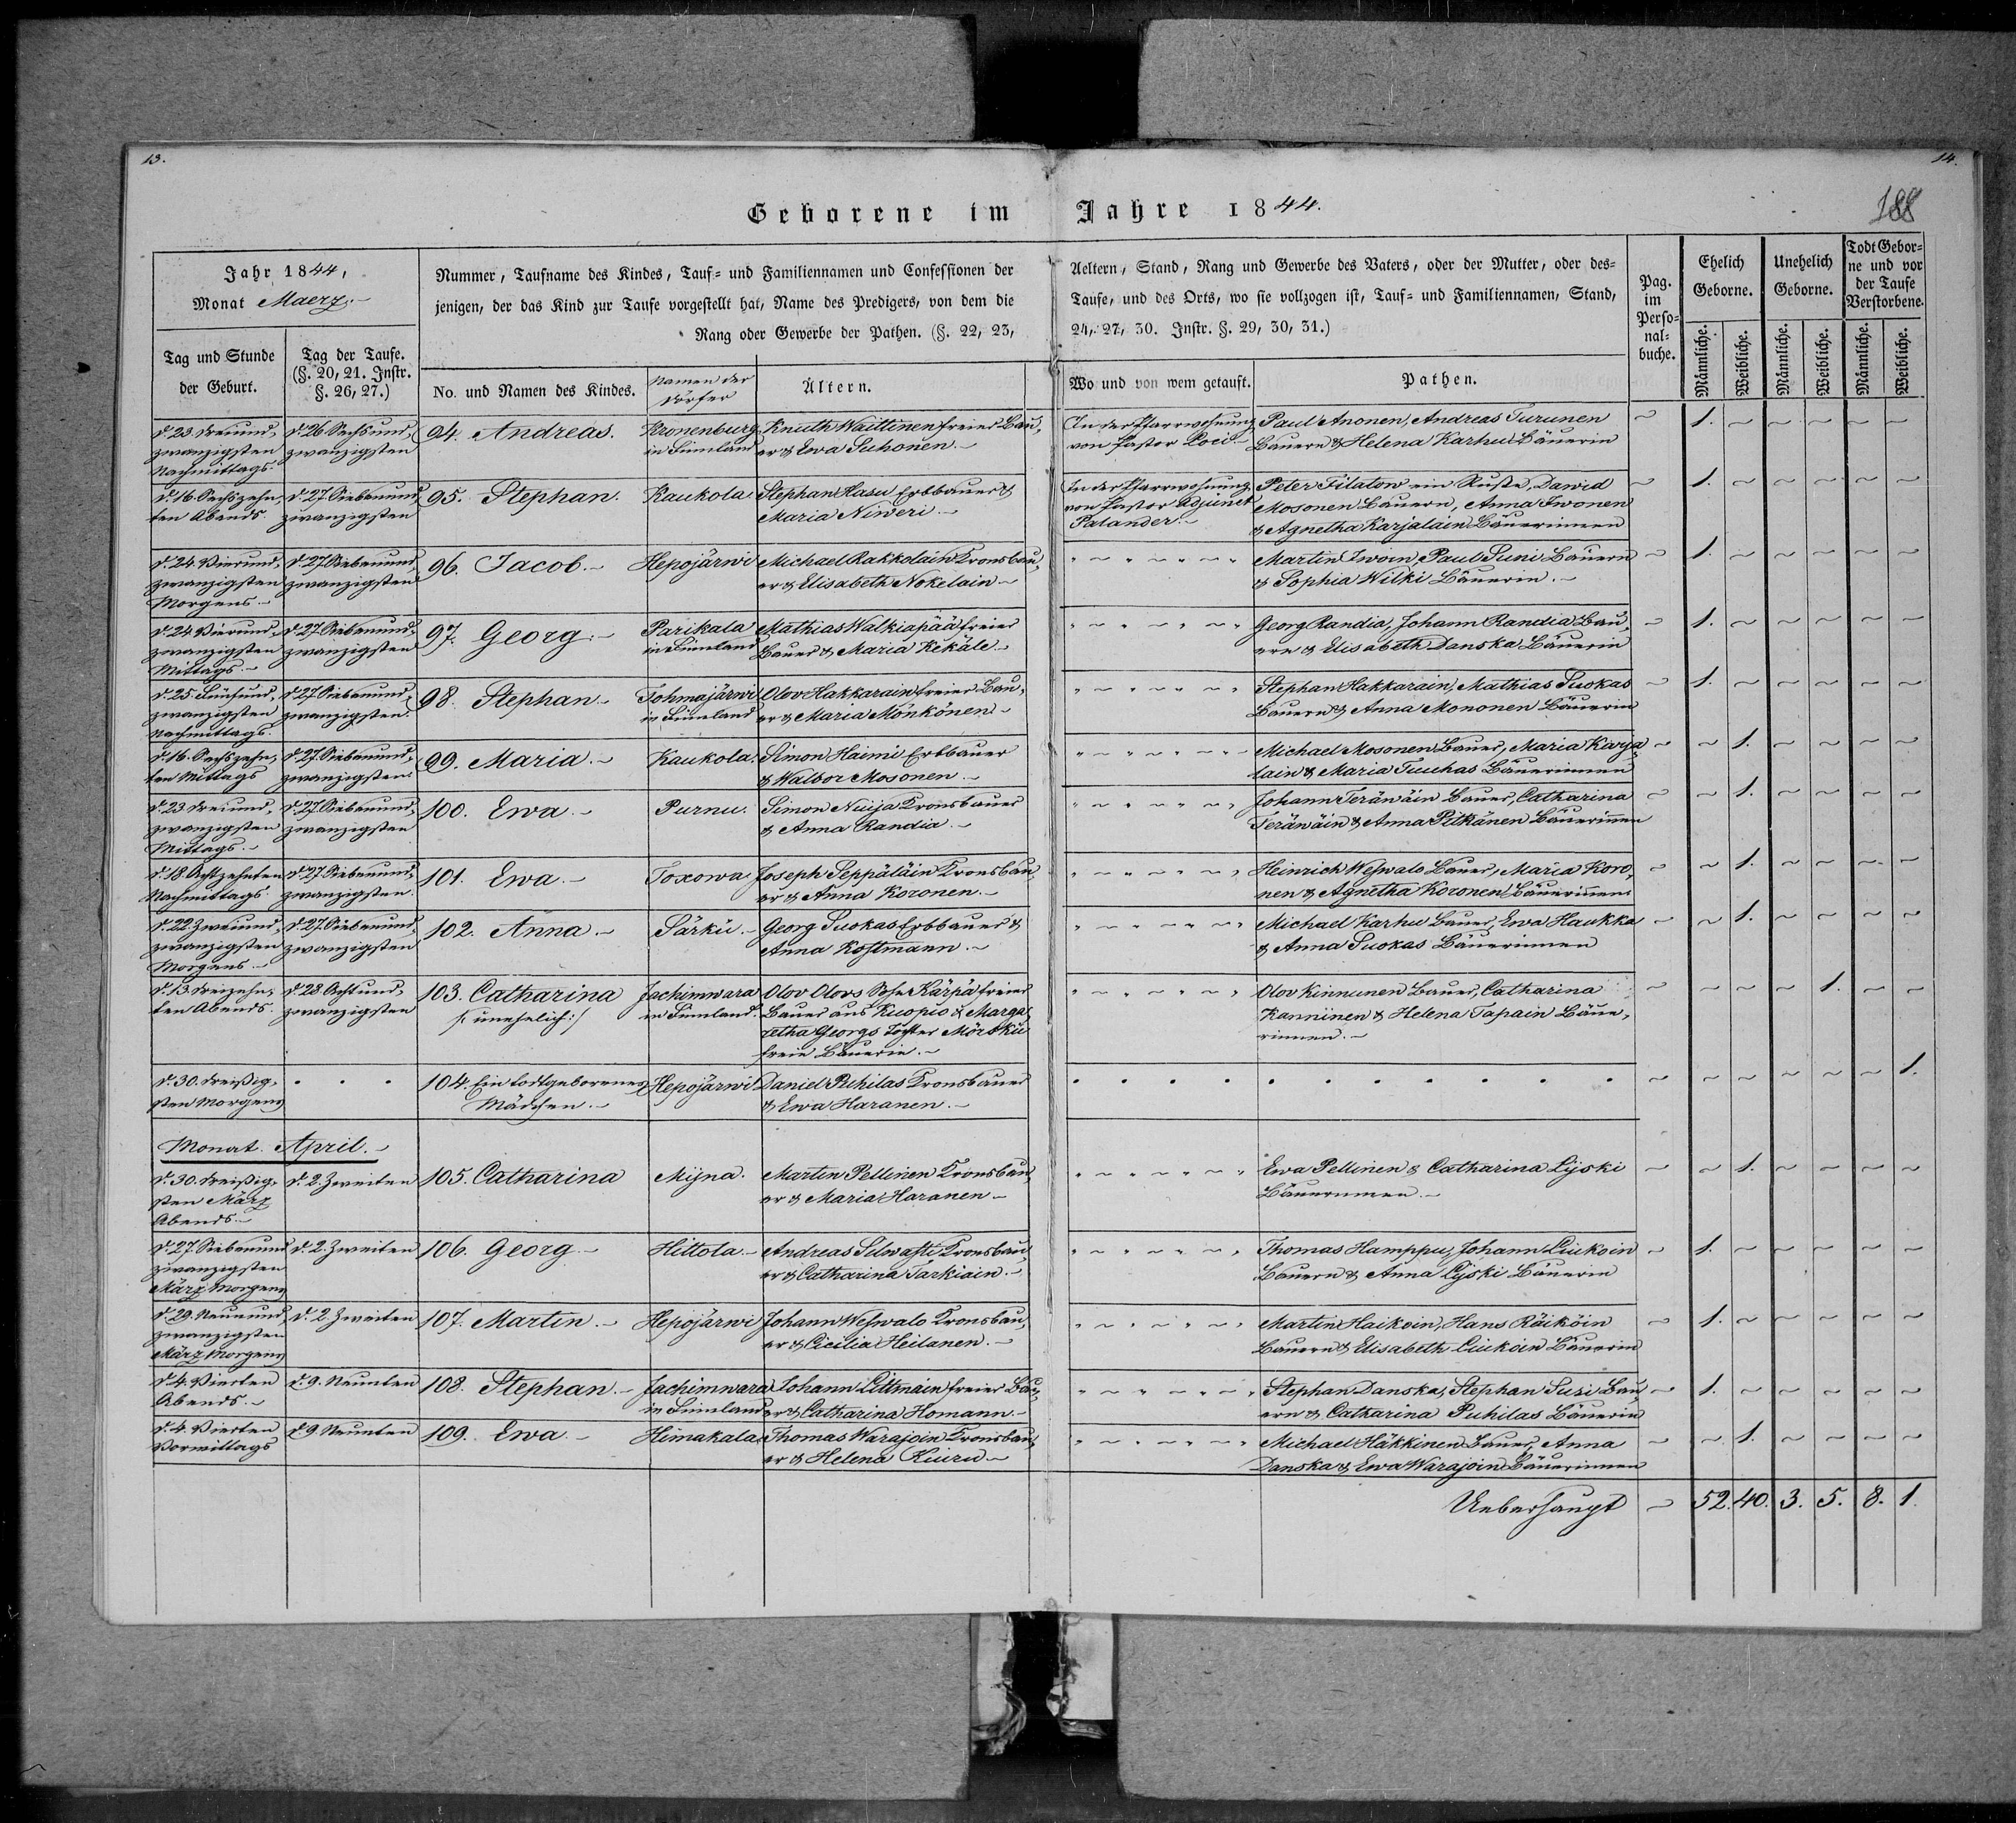 13.
14.
188
Geborene im Jahre 1844.
Jahr 1844,
Monat Maerz.
Tag und Stunde
der Geburt.
Tag der Taufe.
(§. 20, 21. Instr.
§. 26, 27.)
Nummer, Taufname des Kindes, Tauf= und Familiennamen und Confessionen der
jenigen, der das Kind zur Taufe vorgestellt hat, Name des Predigers, von dem die
Rang oder Gewerbe der Pathen. (§. 22, 23,
No. und Namen des Kindes.
Namen der
Dörfer
Ältern.
Aeltern, Stand, Rang und Gewerbe des Vaters, oder der Mutter, oder des=
Taufe, und des Orts, wo sie vollzogen ist, Tauf= und Familiennamen, Stand,
24, 27, 30. Instr. §. 29, 30, 31.)
Wo und von wem getauft.
Pathen.
Pag.
im
Perso=
nal=
buche.
Ehelich
Geborne.
Unehelich
Geborne.
Todt Gebor=
ne und vor
der Taufe
Verstorbene.
Männliche.
Weibliche.
Männliche.
Weibliche.
Männliche.
Weibliche.
d. 23. Dreiund,
zwanzigsten
Nachmittags.
d. 26 Sechsund,
zwanzigsten
94. Andreas.
Kronenburg
in Finnland
Knuth Waittinen freier Bau,
er & Ewa Suhonen.
In der Pfarrwohnung
von Pastor Poci.
Paul Anonen, Andreas Turunen
Bauern & Helena Karhu Bäuerin
1.
d. 16. Sechszehn,
ten Abends.
d. 27. Siebenund,
zwanzigsten
95. Stephan.
Kaukola
Stephan Hasu Erbbauer &
Maria Niweri.
In der Pfarrwohnung
von Pastor Adjunct
Palander.
Peter Filatow ein Russe, Dawid
Mosonen Bauern, Anna Iwonen
& Agnetha Karjalain Bäuerinnen
1.
d. 24. Vierund,
zwanzigsten
Morgens.
d. 27. Siebenund
zwanzigsten
96. Jacob.
Hepojärwi
Michael Rakkolain Kronsbau,
er & Elisabeth Nokelain
Martin Iwoin, Paul Suni Bauern
& Sophia Wilki Bäuerin.
1.
d. 24. Vierund,
zwanzigsten
Mittags.
d. 27. Siebenund,
zwanzigsten
97. Georg.
Parikala
in Finnland
Mathias Walkiapää freier
Bauer & Maria Kekäle
Georg Randia, Johann Randia Bau,
ern & Elisabeth Danska Bäuerin
1.
d. 25. Fünfund,
zwanzigsten
Nachmittags.
d. 27. Siebenund,
zwanzigsten.
98. Stephan.
Tohmajärwi
in Finnland
Olov Hakkarain freier Bau,
er & Maria Mönkönen.
Stephan Hakkarain, Mathias Suokas
Bauern & Anna Mononen Bäuerin
1.
d. 16. Sechszehn,
ten Mittags
d. 27. Siebenund,
zwanzigsten
99. Maria.
Kaukola.
Simon Haimi Erbbauer
& Walbor Mosonen.
Michael Mosonen Bauer, Maria Karja,
lain & Maria Tuuhas Bäuerinnen
1.
d. 23. Dreiund,
zwanzigsten
Mittags.
d. 27. Siebenund,
zwanzigsten
100. Ewa.
Purnu.
Simon Nuija Kronsbauer
& Anna Randia.
Johann Teränäin Bauer, Catharina
Teränäin & Anna Pitkänen Bäuerinnen
1.
d. 18. Achtzehnten
Nachmittags.
d. 27. Siebenund,
zwanzigsten.
101. Ewa.
Toxowa
Joseph Seppäläin Kronsbau,
er & Anna Koronen.
Heinrich Wesswalo Bauer, Maria Koro,
nen & Agnetha Koronen Bäuerinnen
1.
d. 22. Zweiund,
zwanzigsten
Morgens.
d. 27. Siebenund,
zwanzigsten
102. Anna.
Särki.
Georg Suokas Erbbauer &
Anna Kostmann.
Michael Karhu Bauer, Ewa Haukka
& Anna Suokas Bäuerinnen
1.
d. 13. Dreizehn,
ten Abends.
d. 28. Achtund,
zwanzigsten
103. Catharina
/: unehelich :/
Jachimwara
in Finnland.
Olov Olovs Sohn Kärpä freier
Bauer aus Kuopio & Marga,
retha Georgs Tochter Mörskü
freie Bäuerin.
Olov Kinnunen Bauer, Catharina
Kanninen & Helena Tapain Bäue,
rinnen.
1.
d. 30. Dreißig,
sten Morgens
104. Ein todtgeborenes
Mädchen.
Hepojärwi
Daniel Puhilas Kronsbauer
& Ewa Haranen.
1.
Monat April.
d. 30. Dreißig,
sten März
Abends.
d. 2. Zweiten
105. Catharina
Mijna.
Martin Pellinen Kronsbau,
er & Maria Haranen
Ewa Pellinen & Catharina Lijski
Bäuerinnen.
1.
d. 27. Siebenund
zwanzigsten
März Morgens
d. 2. Zweiten
106. Georg
Hittola.
Andreas Silwasti Kronsbau,
er & Catharina Tarkiain.
Thomas Hamppu, Johann Liukoin
Bauern & Anna Lijski Bäuerin
1.
d. 29. Neunund,
zwanzigsten
März Morgens
d. 2. Zweiten
107. Martin.
Hepojärwi
Johann Wesswalo Kronsbau,
er & Cicilia Heilanen.
Martin Haikoin, Hans Räiköin
Bauern & Elisabeth Liukoin Bäuerin
1.
d. 4. Vierten
Abends.
d. 9. Neunten
108. Stephan.
Jachimwara
in Finnland
Johann Littmain freier Bau,
er & Catharina Homann.
Stephan Danska, Stephan Susi Bau,
ern & Catharina Puhilas Bäuerin
1.
d. 4. Vierten
Vormittags
d. 9 Neunten
109. Ewa
Himakala
Thomas Warajoin Kronsbau,
er & Helena Kiuru
Michael Häkkinen Bauer, Anna
Danska & Ewa Warajoin Bäuerinnen
1.
Ueberhaupt
52. 40. 3. 5. 8. 1.